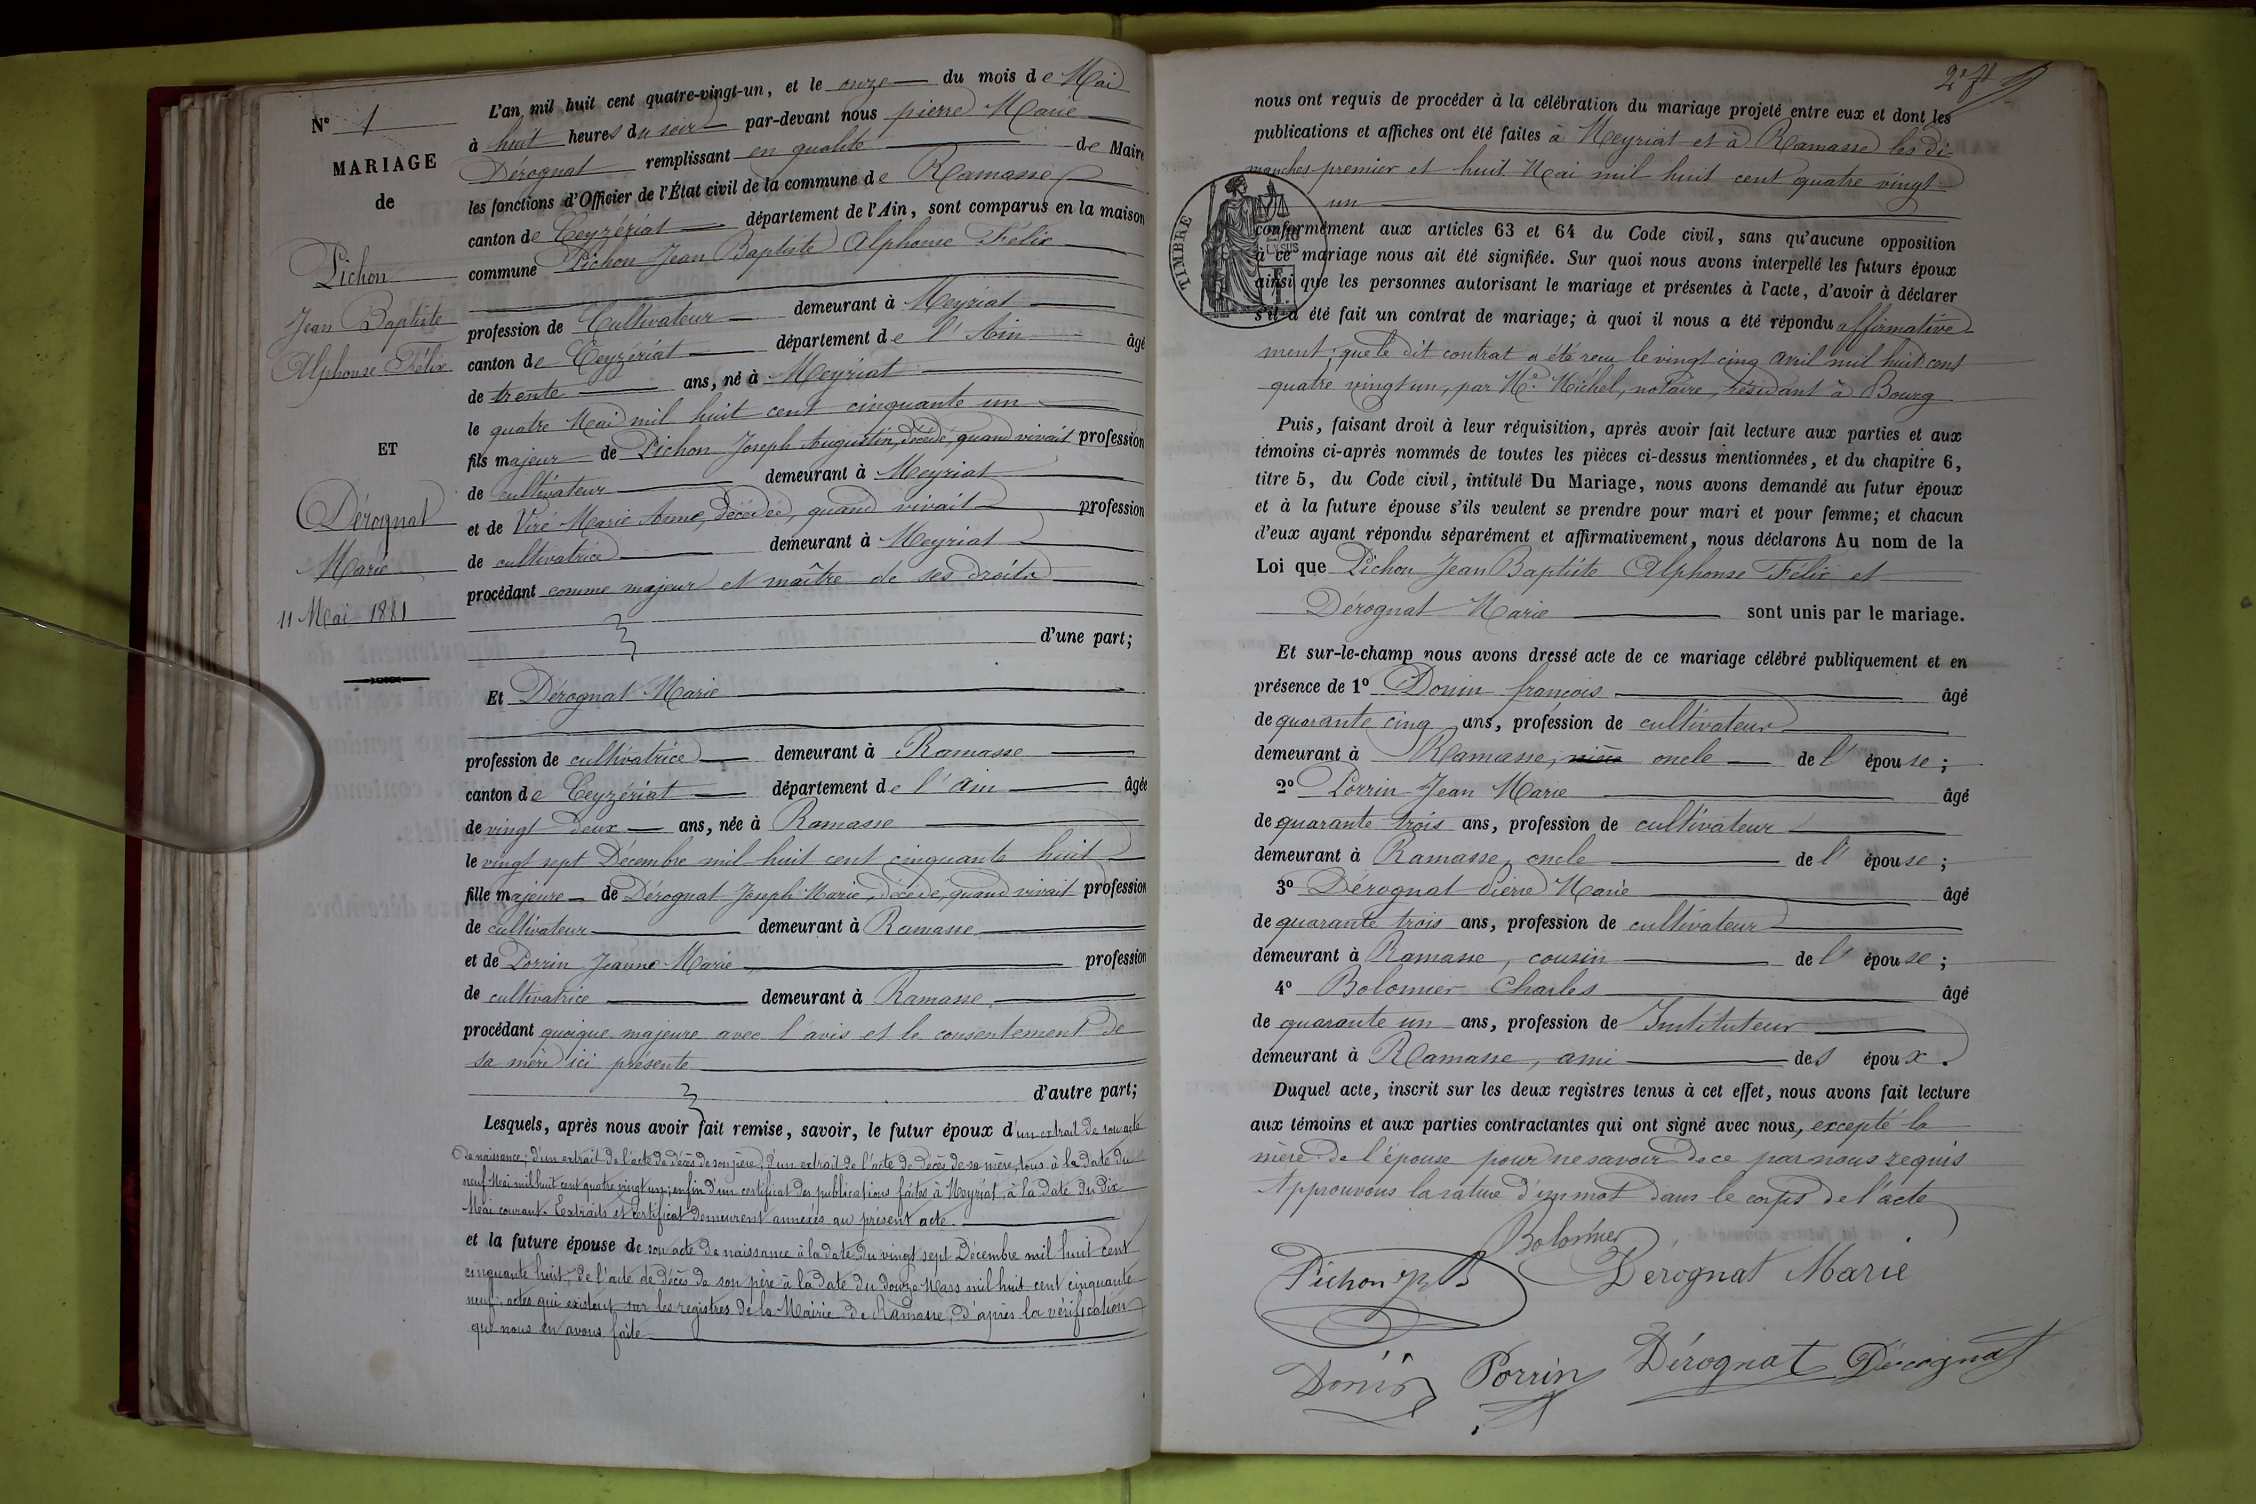 N° 1
MARIAGE
de
Pichon
Jean Baptiste
Alphonse Félix
ET
Dérognat
Marie
11 Mai 1881
L'an mil huit cent quatre-vingt-un, et le onze du mois de Mai
à huit heures du soir par-devant nous pierre Marie
Dérognat remplissant en qualité de Maire
les fonctions d'Officier de l'État civil de la commune de Ramasse
canton de Ceyzériat département de l'Ain, sont comparus en la maison
commune Pichon Jean Baptiste Alphonse Félix
profession de Cultivateur demeurant à Meyriat
canton de Ceyzériat département de l'Ain âgé
de trente ans, né à Meyriat
le quatre Mai mil huit cent cinquante un
fils majeur de Pichon Joseph Augustin, décédé, quand vivait profession
de cultivateur demeurant à Meyriat
et de Viré Marie Anne, décédée, quand vivait profession
de cultivatrice demeurant à Meyriat
procédant comme majeur et maître de ses droits
d'une part;
Et Dérognat Marie
profession de cultivatrice demeurant à Ramasse
canton de Ceyzériat département de l'Ain âgée
de vingt deux ans, née à Ramasse
le vingt sept Décembre mil huit cent cinquante huit
fille majeure de Dérognat Joseph Marie, décédé, quand vivait profession
de cultivateur demeurant à Ramasse
et de Porrin Jeanne Marie profession
de cultivatrice demeurant à Ramasse
procédant quoique majeure avec l'avis et le consentement de
sa mère ici présente
d'autre part;
Lesquels, après nous avoir fait remise, savoir, le futur époux d'un extrait de son acte
de naissance; d'un extrait de l'acte de décès de son père; d'un extrait de l'acte de décès de sa mère, tous à la date du
neuf Mai mil huit cent quatre vingt un; enfin d'un certificat des publications faites à Meyriat, à la date du dix
Mai courant. Extraits et certificat demeurent annexés au présent acte.
et la future épouse de son acte de naissance à la date du vingt sept Décembre mil huit cent
cinquante huit; de l'acte de décès de son père à la date du douze Mars mil huit cent cinquante
neuf, actes qui existent sur les registres de la Mairie de Ramasse, d'après la vérification
que nous en avons faite
nous ont requis de procéder à la célébration du mariage projeté entre eux et dont les
publications et affiches ont été faites à Meyriat et à Ramasse les di-
manches premier et huit Mai mil huit cent quatre vingt
un
TIMBRE
conformément aux articles 63 et 64 du Code civil, sans qu'aucune opposition
à ce mariage nous ait été signifiée. Sur quoi nous avons interpellé les futurs époux
ainsi que les personnes autorisant le mariage et présentes à l'acte, d'avoir à déclarer
s'il a été fait un contrat de mariage; à quoi il nous a été répondu affirmative-
ment; que le dit contrat a été reçu le vingt cinq avril mil huit cent
quatre vingt un, par Me. Michel, notaire, résidant à Bourg
Puis, faisant droit à leur réquisition, après avoir fait lecture aux parties et aux
témoins ci-après nommés de toutes les pièces ci-dessus mentionnées, et du chapitre 6,
titre 5, du Code civil, intitulé Du Mariage, nous avons demandé au futur époux
et à la future épouse s'ils veulent se prendre pour mari et pour femme; et chacun
d'eux ayant répondu séparément et affirmativement, nous déclarons Au nom de la
Loi que Pichon Jean Baptiste Alphonse Félix et
Dérognat Marie sont unis par le mariage.
Et sur-le-champ nous avons dressé acte de ce mariage célébré publiquement et en
présence de 1° Donin françois âgé
de quarante cinq ans, profession de cultivateur
demeurant à Ramasse, oncle de l' épouse;
2° Porrin Jean Marie âgé
de quarante trois ans, profession de cultivateur
demeurant à Ramasse, oncle de l' épouse;
3° Dérognat Pierre Marie âgé
de quarante trois ans, profession de cultivateur
demeurant à Ramasse, cousin de l' épouse;
4° Bolomier Charles âgé
de quarante un ans, profession de Instituteur
demeurant à Ramasse, ami des époux.
Duquel acte, inscrit sur les deux registres tenus à cet effet, nous avons fait lecture
aux témoins et aux parties contractantes qui ont signé avec nous, excepté la
mère de l'épouse pour ne savoir de ce par nous requis
Approuvons la rature d'un mot dans le corps de l'acte
Bolomier
Pichon Dérognat Marie
Donin Porrin Dérognat Dérognat